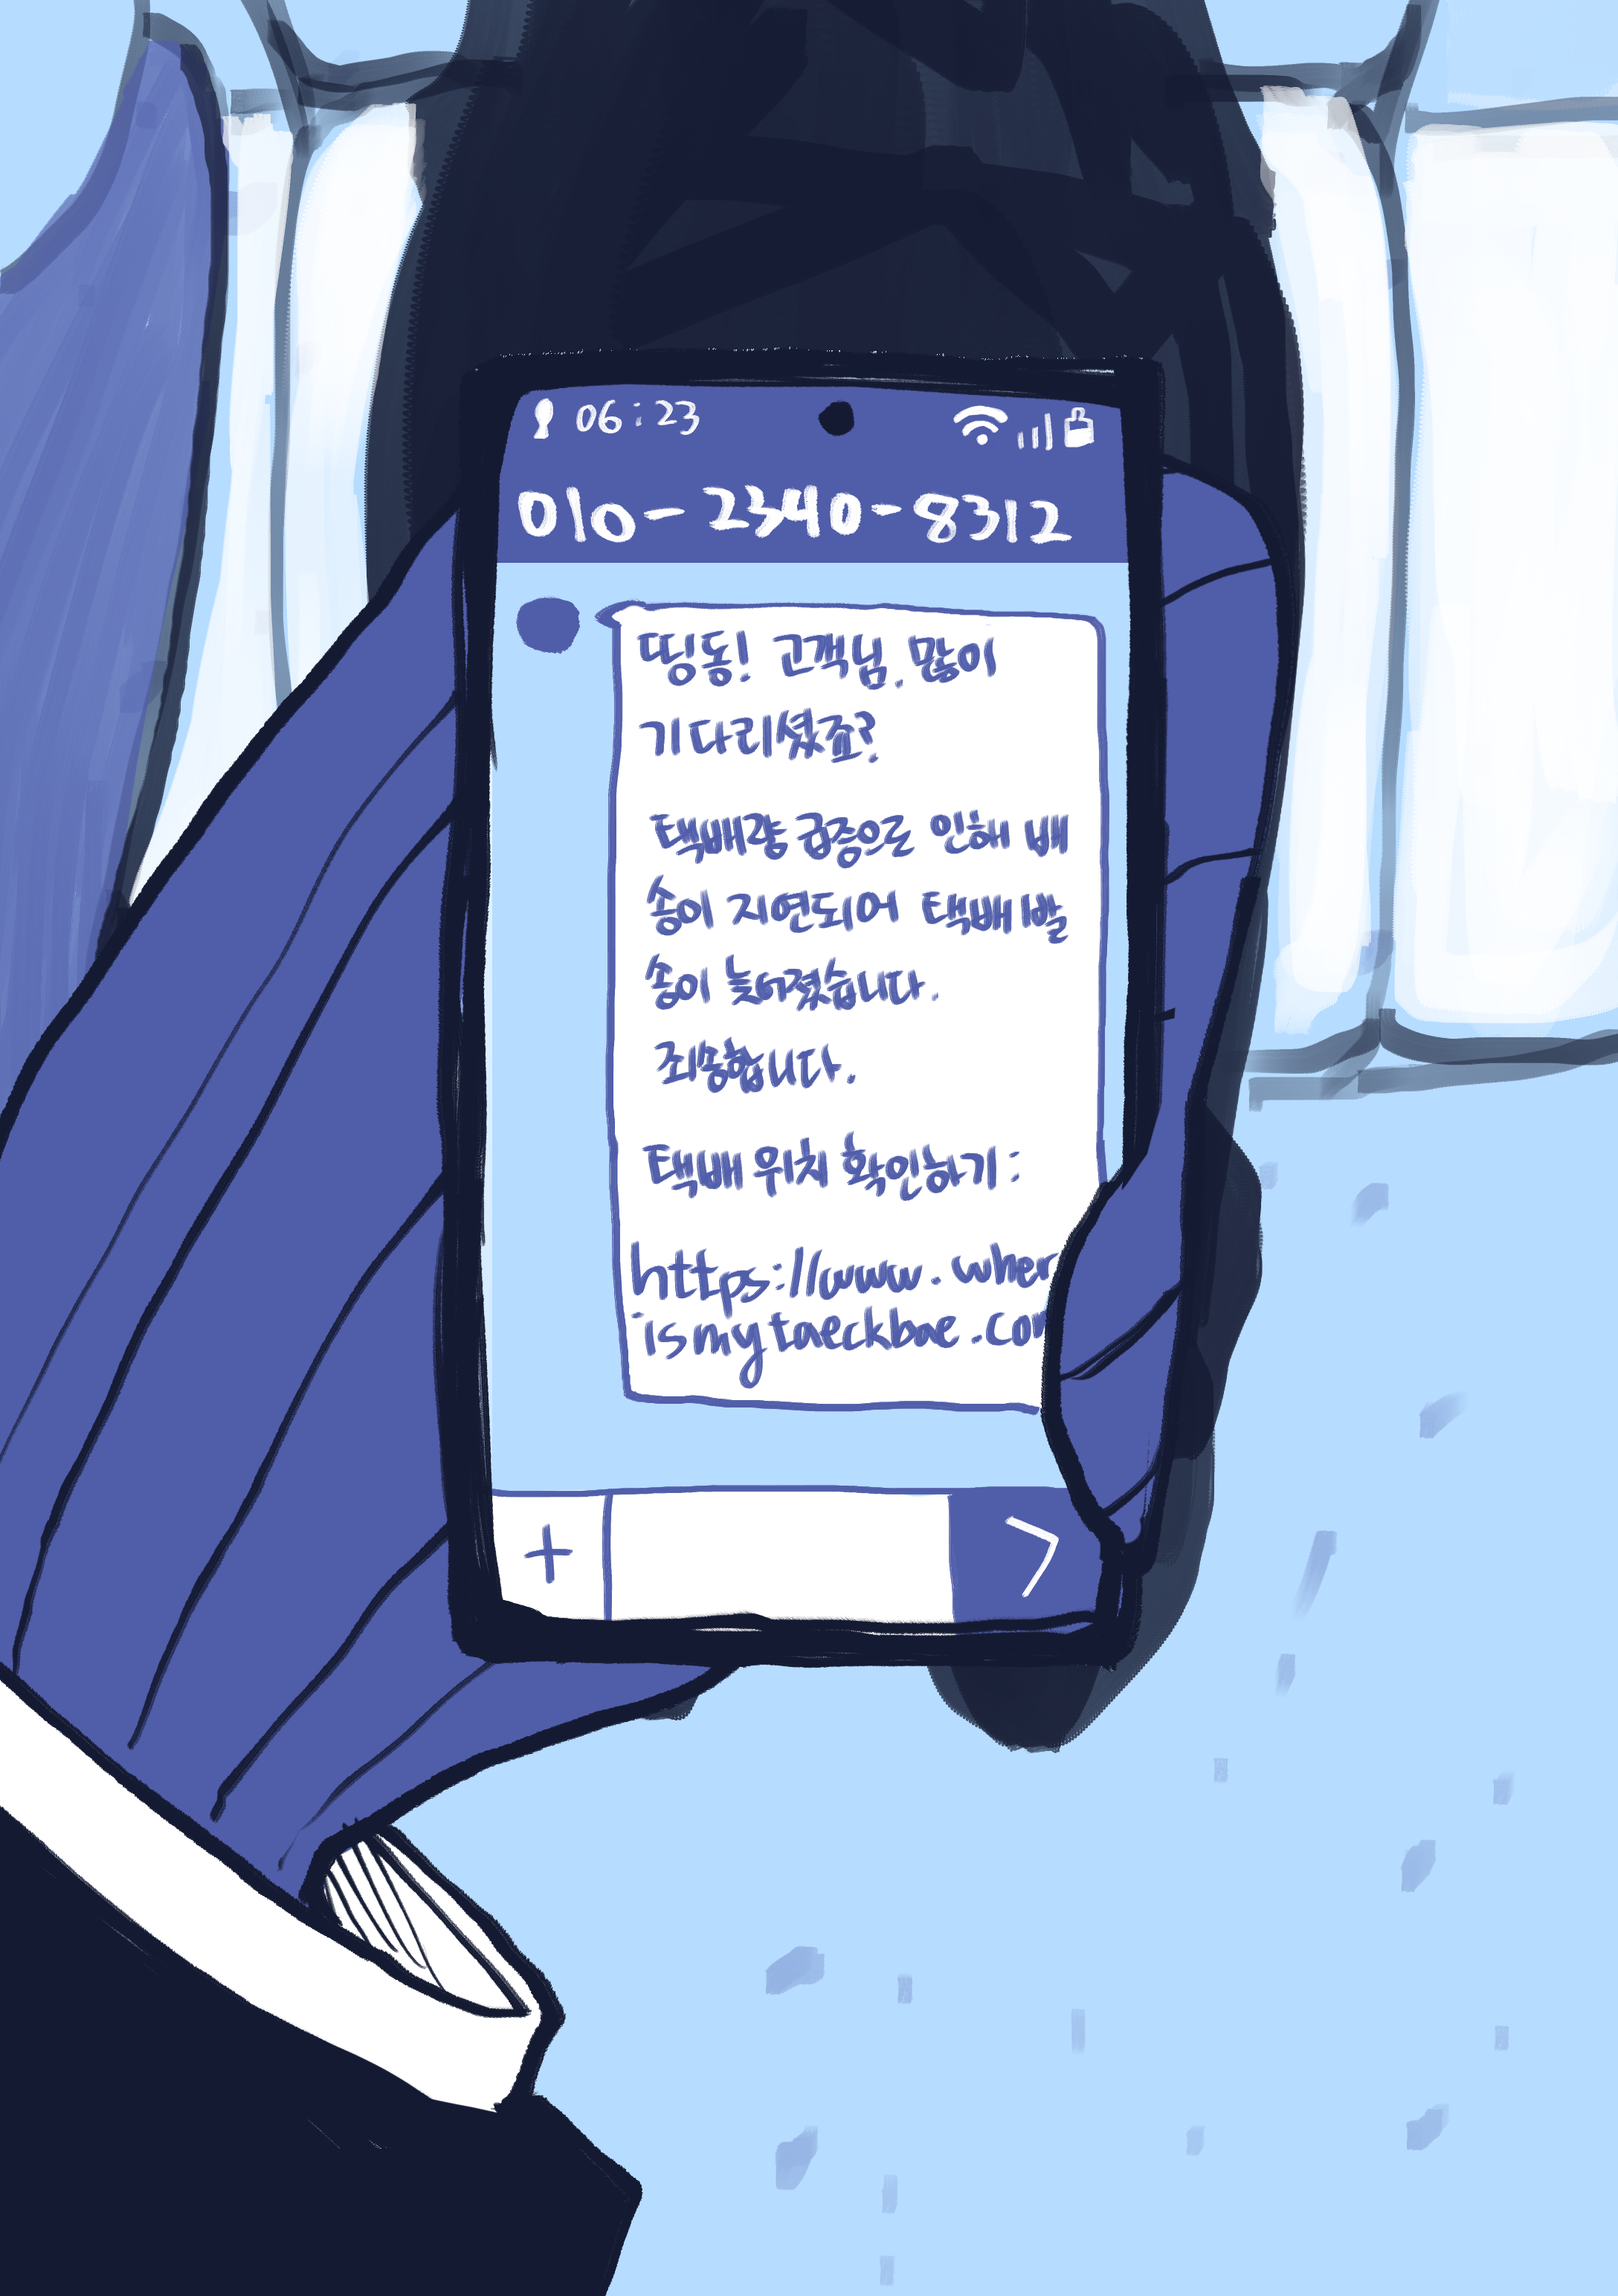 06:23
010-2340-8312
띵동! 고객님, 많이
기다리셨죠?
택배량 급증으로 인해 배
송이 지연되어 택배 발
송이 늦어졌습니다.
죄송합니다.
택배 위치 확인하기:
https://www.wher
ismytaeckbae.co
+